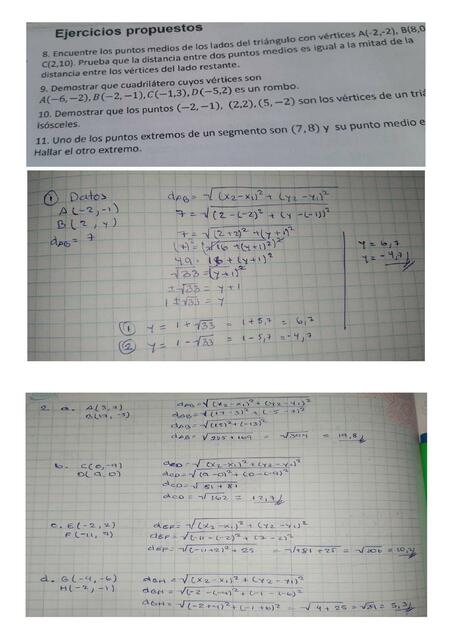 Ejercicios propuestos
8. Encuentre los puntos medios de los lados del triángulo con vértices A(-2,-2), B(8,0
C(2,10). Prueba que la distancia entre dos puntos medios es igual a la mitad de la
distancia entre los vértices del lado restante.
9. Demostrar que cuadrilátero cuyos vértices son
A(−6,−2), B(−2,−1), C(−1,3), D(−5,2) es un rombo.
10. Demostrar que los puntos (−2,−1), (2,2), (5,−2) son los vértices de un triá
isósceles.
11. Uno de los puntos extremos de un segmento son (7,8) y su punto medio e
Hallar el otro extremo.
① Datos
A(-2,-1)
B(2, y)
dAB = 7
dAB = √(x2-x1)² + (y2-y1)²
7 = √(2-(-2)² + (y-(-1))²
7 = √(2+2)² + (y+1)²
(7)² = (√16 + (y+1)²)²
49 = 16 + (y+1)²
√33 = (y+1)²
±√33 = y+1
1±√33 = y
① y = 1+√33 = 1+5,7 = 6,7
② y = 1-√33 = 1-5,7 = -4,7
y = 6,7
y = -4,7
2. a. A(3,7)
dAB = √(x2-x1)² + (y2-y1)²
dAB = √(17-3)² + (-5-7)²
dAB = √(15)² + (-13)²
dAB = √225+169 = √394 = 19,8
b. C(0,-9)
D(9,0)
dCD = √(x2-x1)² + (y2-y1)²
dCD = √(9-0)² + (0-(-9)²
dCD = √81+81
dCD = √162 = 12,7
c. E(-2,2)
F(-11,7)
dEF = √(x2-x1)² + (y2-y1)²
dEF = √(-11-(-2)² + (7-2)²
dEF = √(-11+2)² + 25 = √81+25 = √106 = 10,2
d. G(-4,-6)
H(-2,-1)
dGH = √(x2-x1)² + (y2-y1)²
dGH = √(-2-(-4)² + (-1-(-6)²
dGH = √(-2+4)² + (-1+6)² = √4+25 = √29 = 5,3